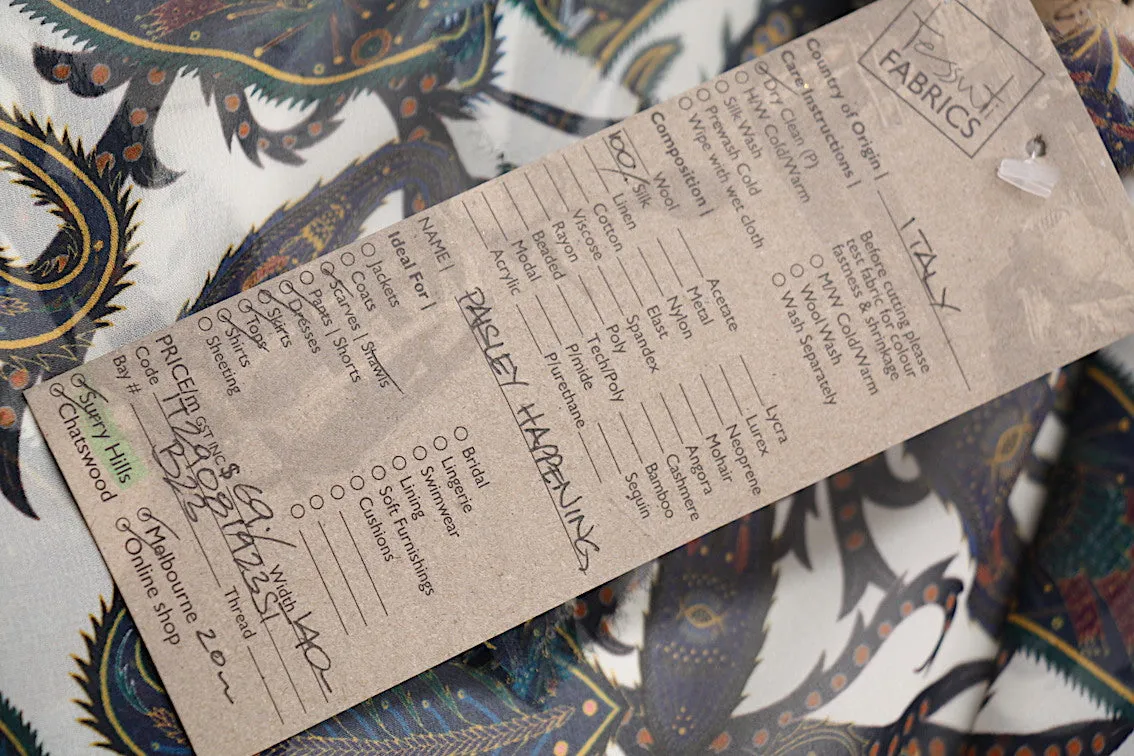 Tessuti
FABRICS
Country of Origin | ITALY
Care Instructions |
Dry Clean (P)
H/W Cold/Warm
Silk Wash
Prewash Cold
Wipe with wet cloth
Before cutting please
test fabric for colour
fastness & shrinkage
M/W Cold/Warm
Wool Wash
Wash Separately
Composition |
Wool Acetate Lycra
100/ Silk Metal Lurex
Linen Nylon Neoprene
Cotton Elast Mohair
Viscose Spandex Angora
Rayon Poly Cashmere
Beaded Tech/Poly Bamboo
Modal P/mide Sequin
Acrylic P/urethane
NAME | PAISLEY HAPPENING
Ideal For |
Jackets
Coats
Scarves | Shawls
Pants | Shorts
Dresses
Skirts
Tops
Shirts
Sheeting
Bridal
Lingerie
Swimwear
Lining
Soft Furnishings
Cushions
PRICE/m GST INC $ 69./ Width 140
Code
Bay # B25 Thread
Surry Hills Melbourne 20m
Chatswood Online shop